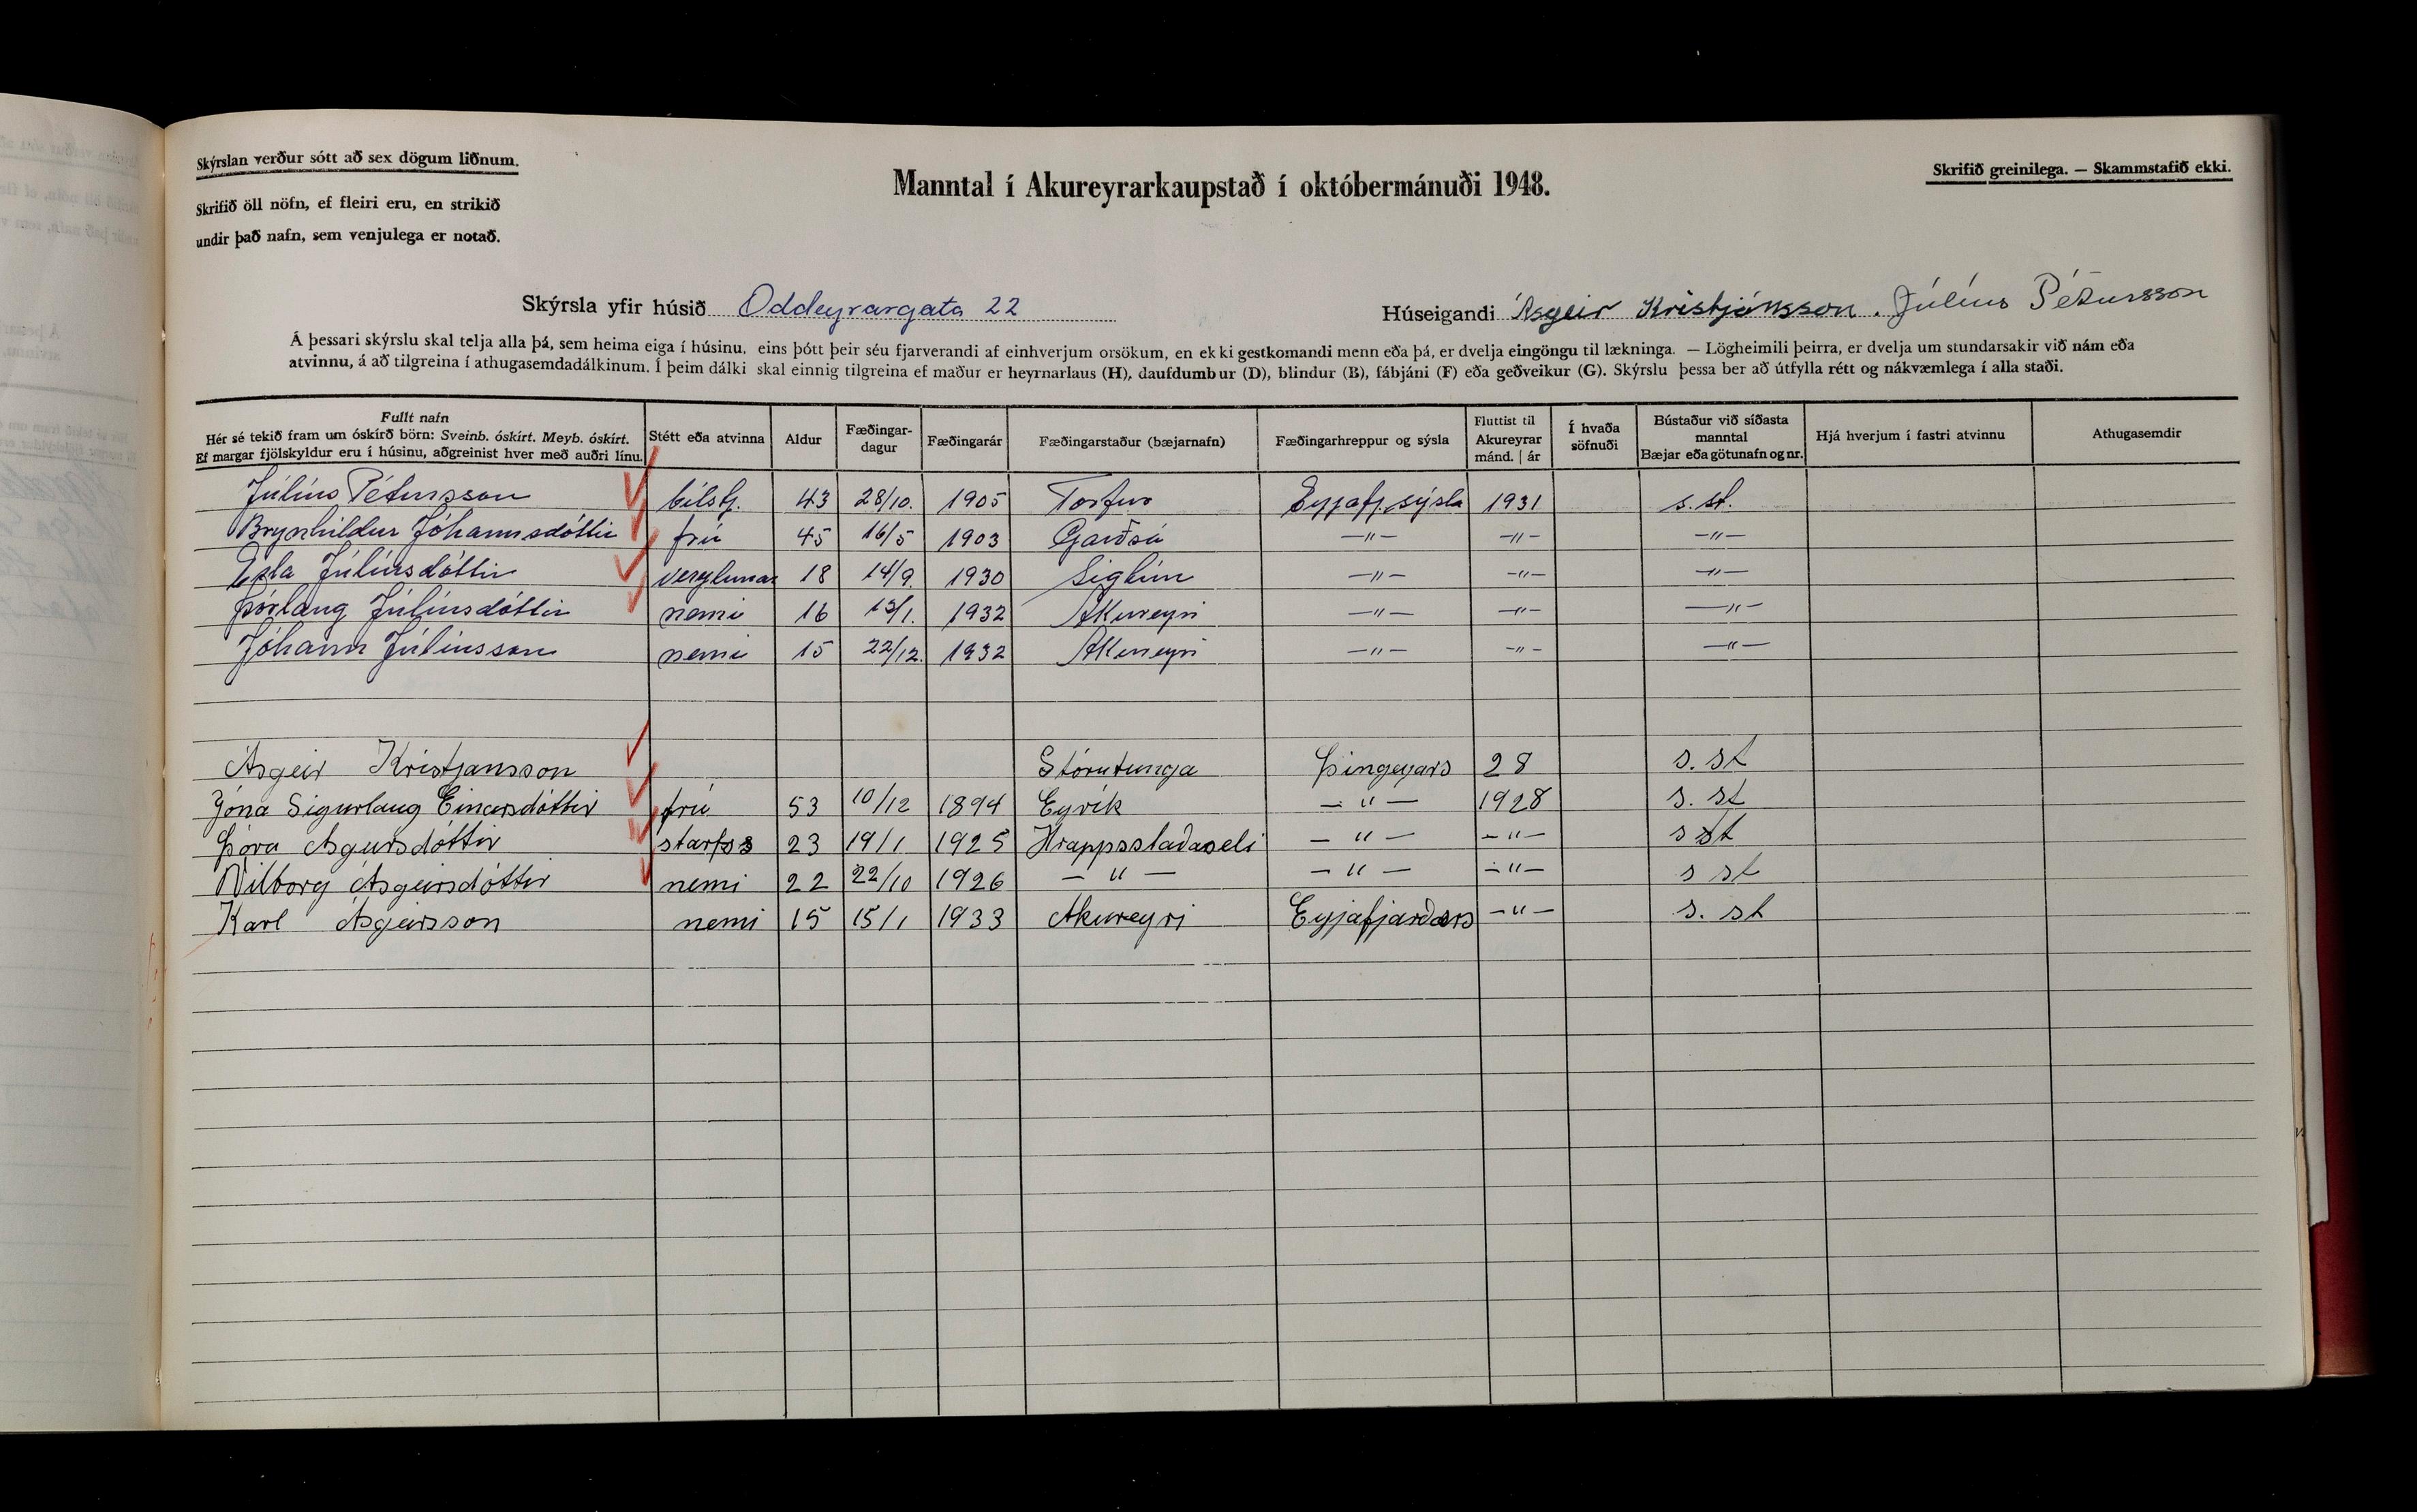 Skýrslan verður sótt að sex dögum liðnum.
Skrifið öll nöfn, ef fleiri eru, en strikið
undir það nafn, sem venjulega er notað.
Manntal í Akureyrarkaupstað í októbermánuði 1948.
Skrifið greinilega. — Skammstafið ekki.
Skýrsla yfir húsið Oddeyrargata 22
Húseigandi Ásgeir Kristjánsson. Júlíus Pétursson
Á þessari skýrslu skal telja alla þá, sem heima eiga í húsinu, eins þótt þeir séu fjarverandi af einhverjum orsökum, en ekki gestkomandi menn eða þá, er dvelja eingöngu til lækninga. — Lögheimili þeirra, er dvelja um stundarsakir við nám eða
atvinnu, á að tilgreina í athugasemdadálkinum. Í þeim dálki skal einnig tilgreina ef maður er heyrnarlaus (H), daufdumbur (D), blindur (B), fábjáni (F) eða geðveikur (G). Skýrslu þessa ber að útfylla rétt og nákvæmlega í alla staði.
Fullt nafn
Hér sé tekið fram um óskírð börn: Sveinb. óskírt. Meyb. óskírt.
Ef margar fjölskyldur eru í húsinu, aðgreinist hver með auðri línu.
Stétt eða atvinna
Aldur
Fæðingar-
dagur
Fæðingarár
Fæðingarstaður (bæjarnafn)
Fæðingarhreppur og sýsla
Fluttist til
Akureyrar
mánd. | ár
Í hvaða
söfnuði
Bústaður við síðasta
manntal
Bæjar eða götunafn og nr.
Hjá hverjum í fastri atvinnu
Athugasemdir
Júlíus Pétursson bílstj. 43 28/10. 1905 Torfur Eyjafj.sýsla 1931 s.st.
Brynhildur Jóhannsdóttir frú 45 16/5 1903 Garðsá —"— —"— —"—
Júlíusdóttir 18 14/9. 1930 Siglun —"— —"— —"—
Þórlaug Júlíusdóttir nemi 16 13/1. 1932 Akureyri —"— —"— —"—
Jóhann Júlíusson nemi 15 22/12. 1932 Akureyri —"— —"— —"—
Ásgeir Kristjansson Stórutunga Þingeyars 28 s. st
Jóna Sigurlaug Einarsdóttir frú 53 10/12 1894 Eyvík —"— 1928 s. st
Þóra Asgeirsdóttir starfss 23 19/1 1925 Hrappsstaðaseli —"— —"— s st
Vilborg Ásgeirsdóttir nemi 22 22/10 1926 —"— —"— —"— s st
Karl Ásgeirsson nemi 15 15/1 1933 Akureyri Eyjafjarðars —"— s. st